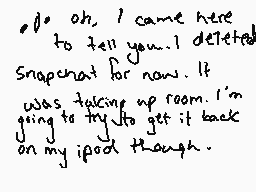 .p. oh, I came here
to tell you. I deleted
Snapchat for now. It
was taking up room. I'm
going to try to get it back
on my ipod though.